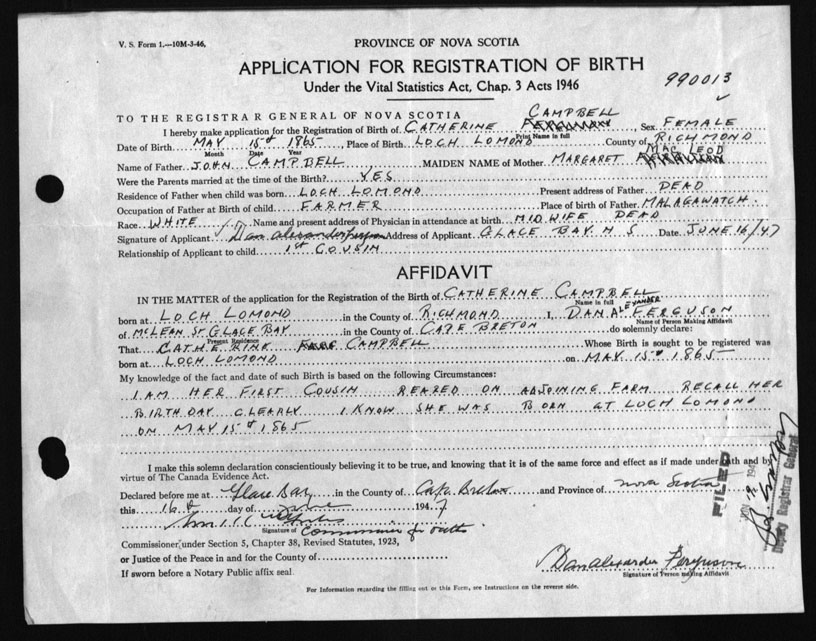 V. S. Form 1.—10M-3-46.
PROVINCE OF NOVA SCOTIA
APPLICATION FOR REGISTRATION OF BIRTH
Under the Vital Statistics Act, Chap. 3 Acts 1946
990013
TO THE REGISTRAR GENERAL OF NOVA SCOTIA
CAMPBELL
I hereby make application for the Registration of Birth of CATHERINE Sex FEMALE
Print Name in full
Date of Birth MAY 15th 1865 Place of Birth LOCH LOMOND County of RICHMOND
Month Date Year
MAC LEOD
Name of Father JOHN CAMPBELL MAIDEN NAME of Mother MARGARET
Were the Parents married at the time of the Birth? YES
Residence of Father when child was born LOCH LOMOND Present address of Father DEAD
Occupation of Father at Birth of child FARMER Place of birth of Father MALAGAWATCH
Race WHITE Name and present address of Physician in attendance at birth MIDWIFE DEAD
Signature of Applicant Dan Alexander Ferguson Address of Applicant GLACE BAY N S Date JUNE 16/47
Relationship of Applicant to child 1st COUSIN
AFFIDAVIT
IN THE MATTER of the application for the Registration of the Birth of CATHERINE CAMPBELL
Name in full
born at LOCH LOMOND in the County of RICHMOND I, DAN ALEXANDER FERGUSON
Name of Person Making Affidavit
of McLEAN ST GLACE BAY in the County of CAPE BRETON do solemnly declare:
Present Residence
That CATHERINE CAMPBELL Whose Birth is sought to be registered was
born at LOCH LOMOND on MAY 15th 1865
My knowledge of the fact and date of such Birth is based on the following Circumstances:
I AM HER FIRST COUSIN REARED ON ADJOINING FARM RECALL HER
BIRTHDAY CLEARLY I KNOW SHE WAS BORN AT LOCH LOMOND
ON MAY 15th 1865
I make this solemn declaration conscientiously believing it to be true, and knowing that it is of the same force and effect as if made under oath and by
virtue of The Canada Evidence Act.
Declared before me at Glace Bay in the County of Cape Breton and Province of Nova Scotia
this 16th day of June 1947
Signature of Commissioner of Oaths
Commissioner under Section 5, Chapter 38, Revised Statutes, 1923,
or Justice of the Peace in and for the County of
If sworn before a Notary Public affix seal.
Dan Alexander Ferguson
Signature of Person making Affidavit
For Information regarding the filling out of this Form, see Instructions on the reverse side.
FILED
Deputy Registrar General